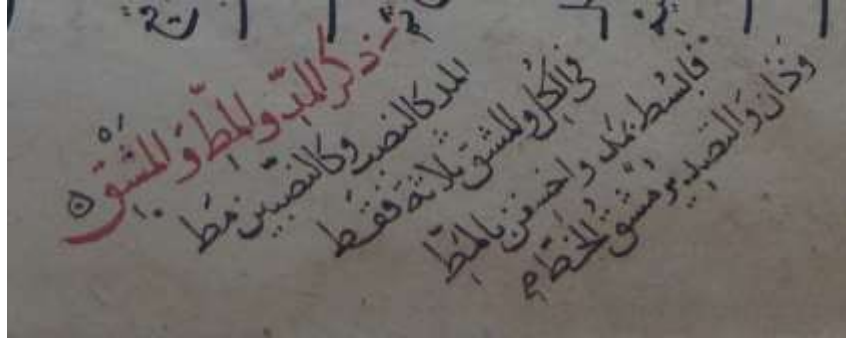 ذكر المد والمط والمشق
المد كالنصب وكالنصبين مط
في الكل والمشق ثلاثة فقط
فابسط بمد واحد من بالمط
وذان والتصدير مشق الخط